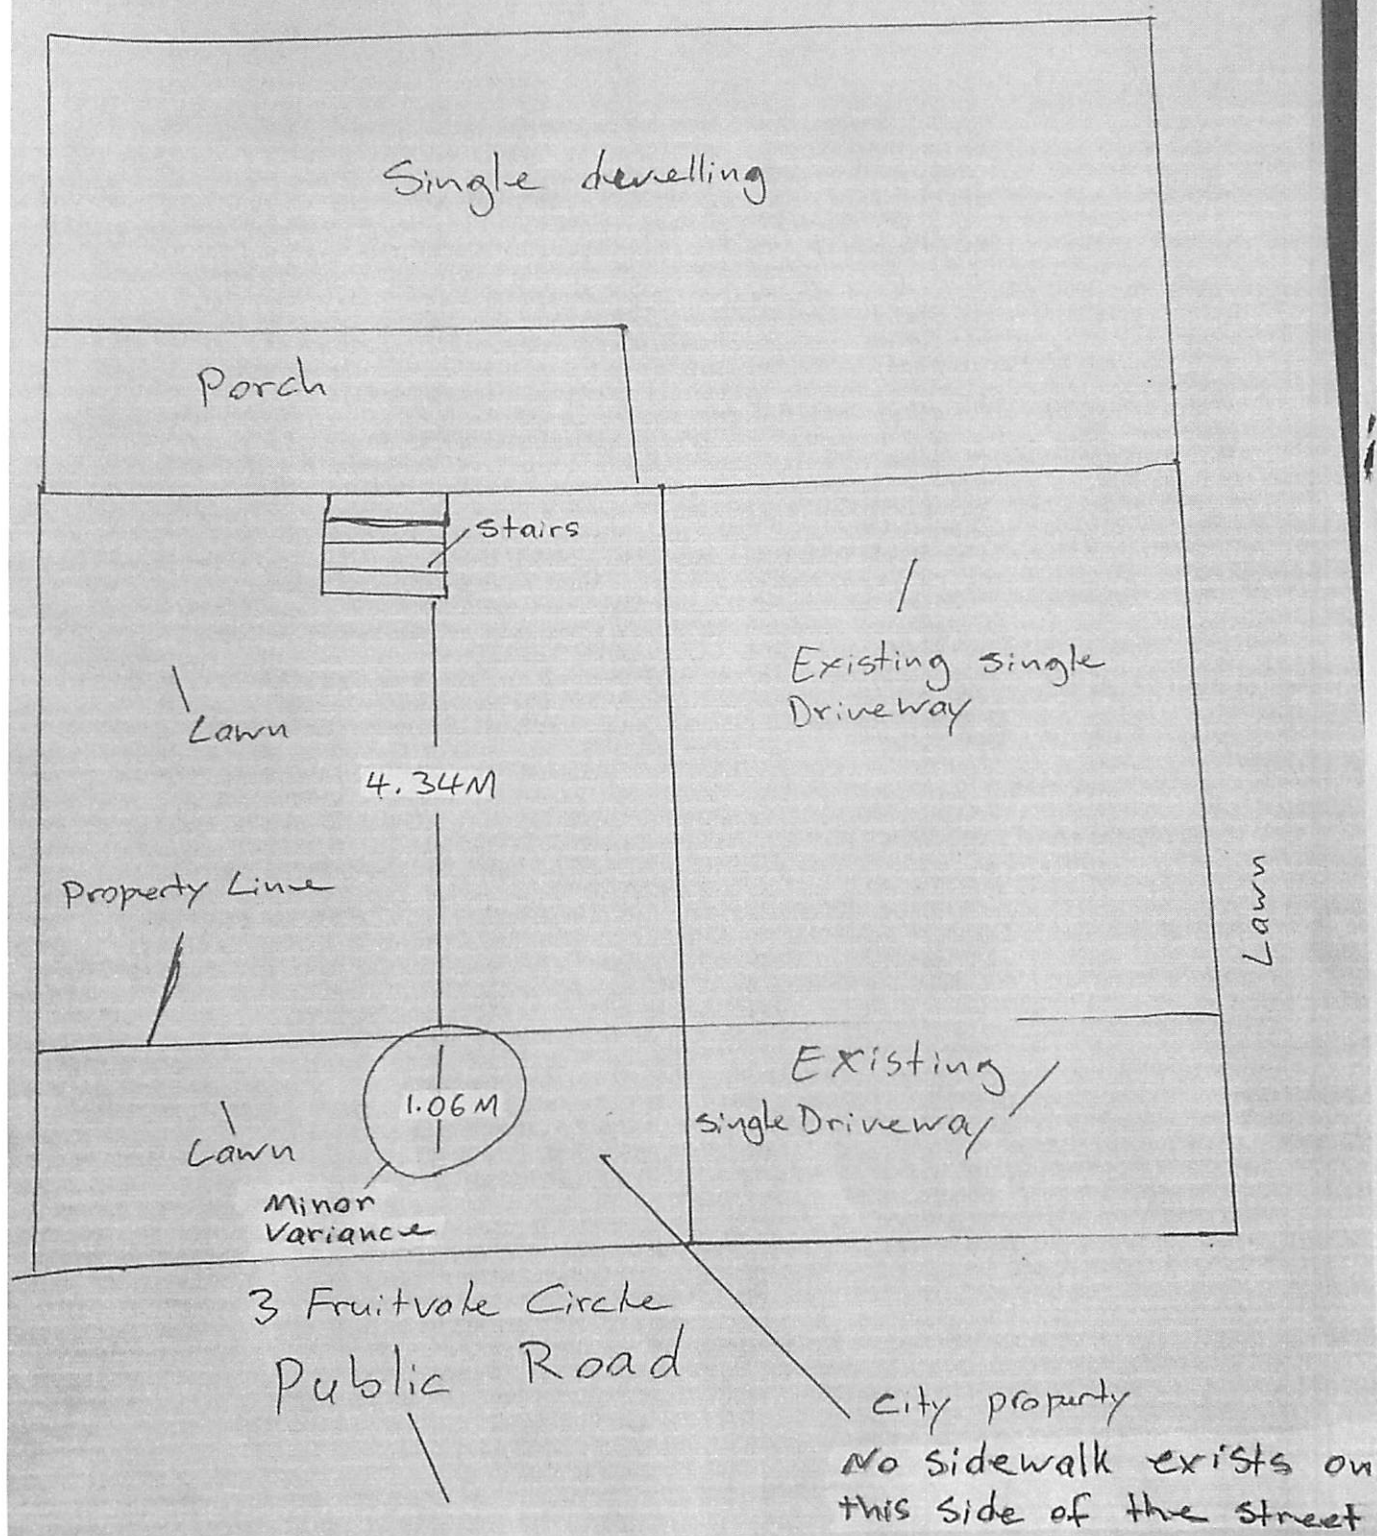 Single dwelling
Porch
Stairs
Existing single
Driveway
Lawn
4.34M
Property Line
Lawn
Existing
single Driveway
1.06M
Lawn
Minor
Variance
3 Fruitvale Circle
Public Road
City property
No sidewalk exists on
this side of the street